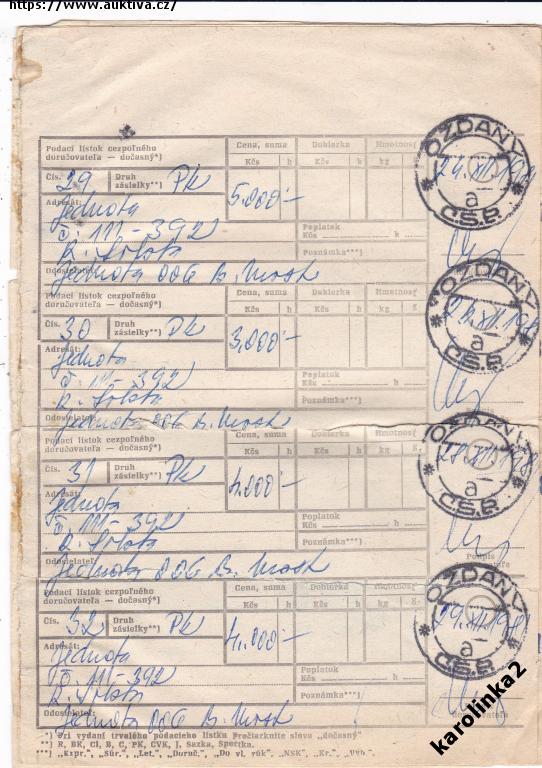 https://www.auktiva.cz/
Podací lístok cezpoľného
doručovateľa — dočasný*)
Cena, suma
Dobierka
Hmotnosť
Kčs h
Kčs h
kg
Čís. 29
Druh
zásielky**) Pk
5.000'-
Adresát:
Jednota
č. 111-392
R. Sobota
Poplatok
Kčs h
Poznámka***)
Odosielateľ:
Jednota 006 B. Mosk
OZDANY
29.XII.198
a
Č.S.P.
Podací lístok cezpoľného
doručovateľa — dočasný*)
Cena, suma
Dobierka
Hmotnosť
Kčs h
Kčs h
kg
Čís. 30
Druh
zásielky**) Pk
3.000'-
Adresát:
Jednota
č. 111-392
R. Sobota
Poplatok
Kčs h
Poznámka***)
Odosielateľ:
Jednota 006 B. Mosk
OZDANY
29.XII.198
a
Č.S.P.
Podací lístok cezpoľného
doručovateľa — dočasný*)
Cena, suma
Dobierka
Hmotnosť
Kčs h
Kčs h
kg
Čís. 31
Druh
zásielky**) Pk
4.000'-
Adresát:
Jednota
č. 111-392
R. Sobota
Poplatok
Kčs h
Poznámka***)
Odosielateľ:
Jednota 006 B. Mosk
Podpis
OZDANY
29.XII.198
a
Č.S.P.
Podací lístok cezpoľného
doručovateľa — dočasný*)
Cena, suma
Dobierka
Hmotnosť
Kčs h
Kčs h
kg
Čís. 32
Druh
zásielky**) Pk
4.000'-
Adresát:
Jednota
č. 111-392
R. Sobota
Poplatok
Kčs h
Poznámka***)
Odosielateľ:
Jednota 006 B. Mosk
OZDANY
29.XII.198
a
Č.S.P.
*) Pri vydaní trvalého podacieho lístku Prečiarknite slovo „dočasný"
**) R, BK, Cl, B, C, PK, CVK, J, Sazka, Športka.
***) „Expr.", „Súr.", „Let.", „Doruč.", „Do vl. rúk", „NSK", „Kr.", „Útb."
karolinka2